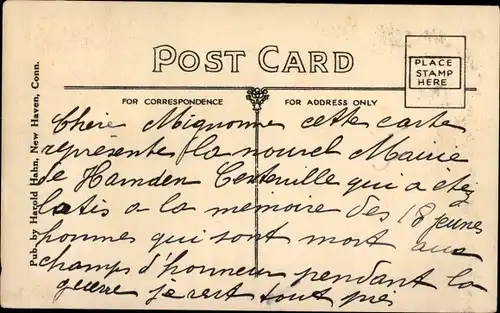 POST CARD
PLACE
STAMP
HERE
FOR CORRESPONDENCE
FOR ADDRESS ONLY
Pub. by Harold Hahn, New Haven, Conn.
Chère Mignonne cette carte
représente la nouvel Mairie
de Hamden Centerville qui a etez
batis a la memoire des 18 jeunes
hommes qui sont mort aux
champs d'honneur pendant la
guerre je rest tout près